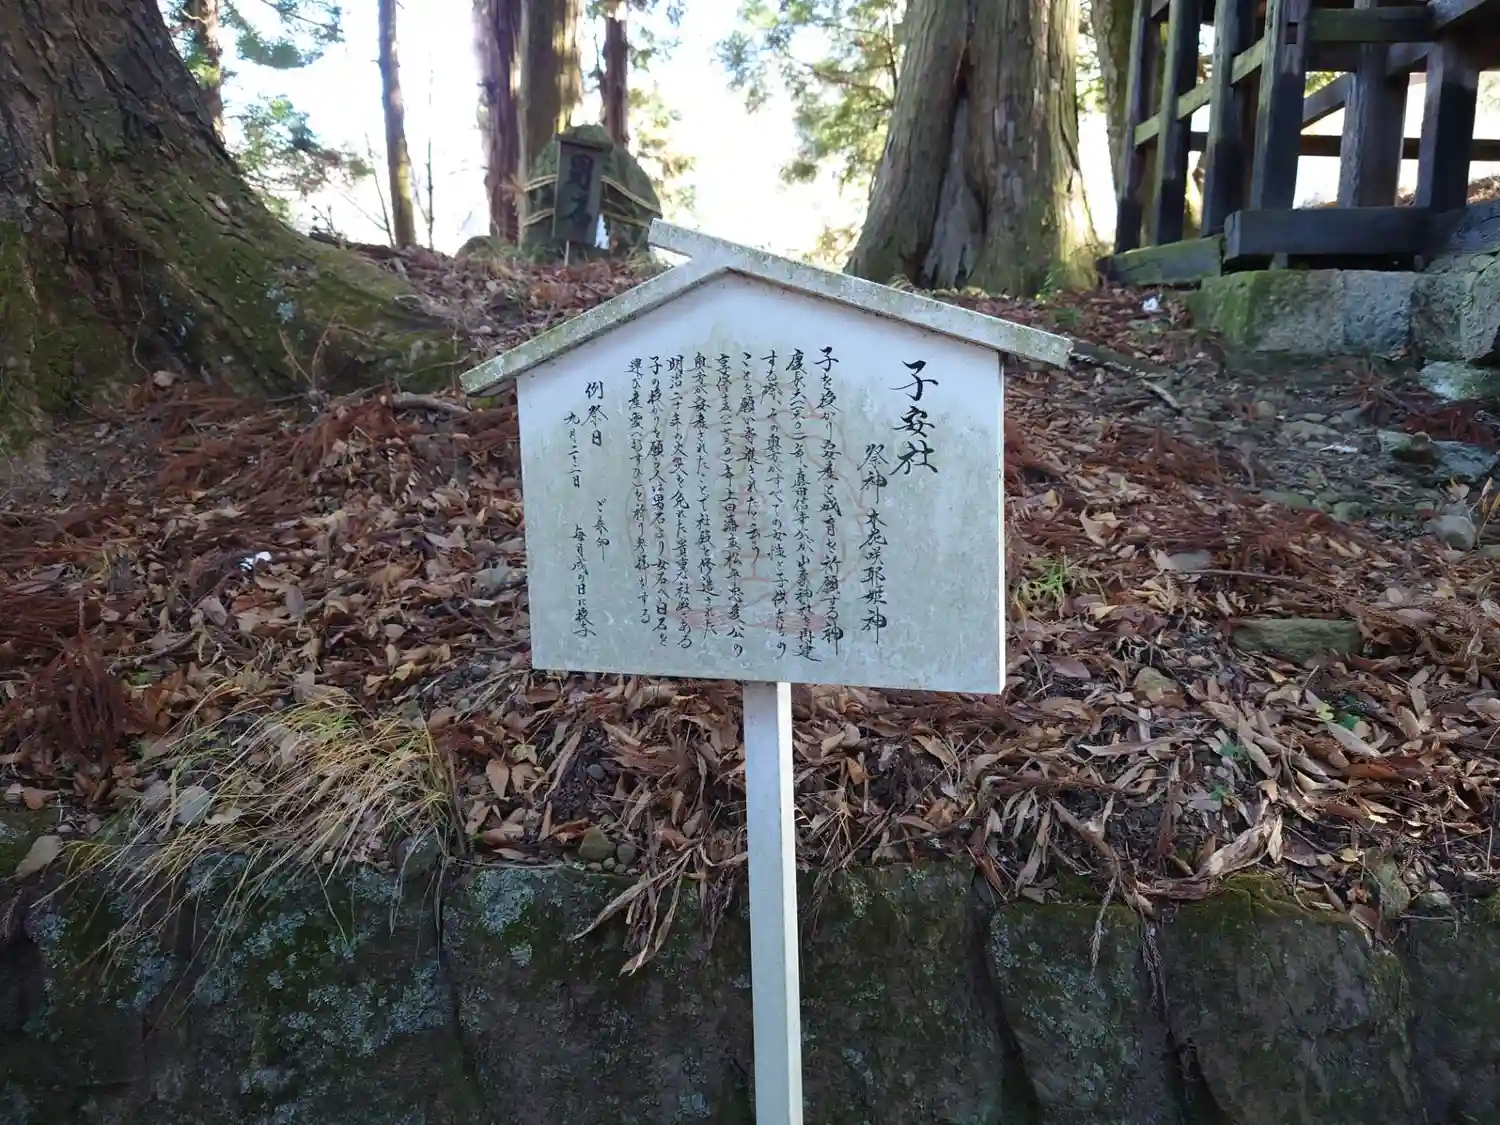 子安社
祭神 木花咲耶姫神
子を授かり安産と成育を祈願する神
慶長六(一六〇一)年、真田信幸公が山家神社を再建
する際、その奥方がすべての女性と子供たちの
ことを願い寄進されたと云う
享保五(一七二〇)年上田藩主松平忠愛公の
奥方が安産されたことで社殿を修造された
明治二十年の火災を免れた貴重な社殿である
子の授かりを願う人は男石より女石へ白石を
運び産霊(むすひ)を祈り参拝をする
例祭日
九月二十二日
ご朱印
毎月戌の日に授与
男石